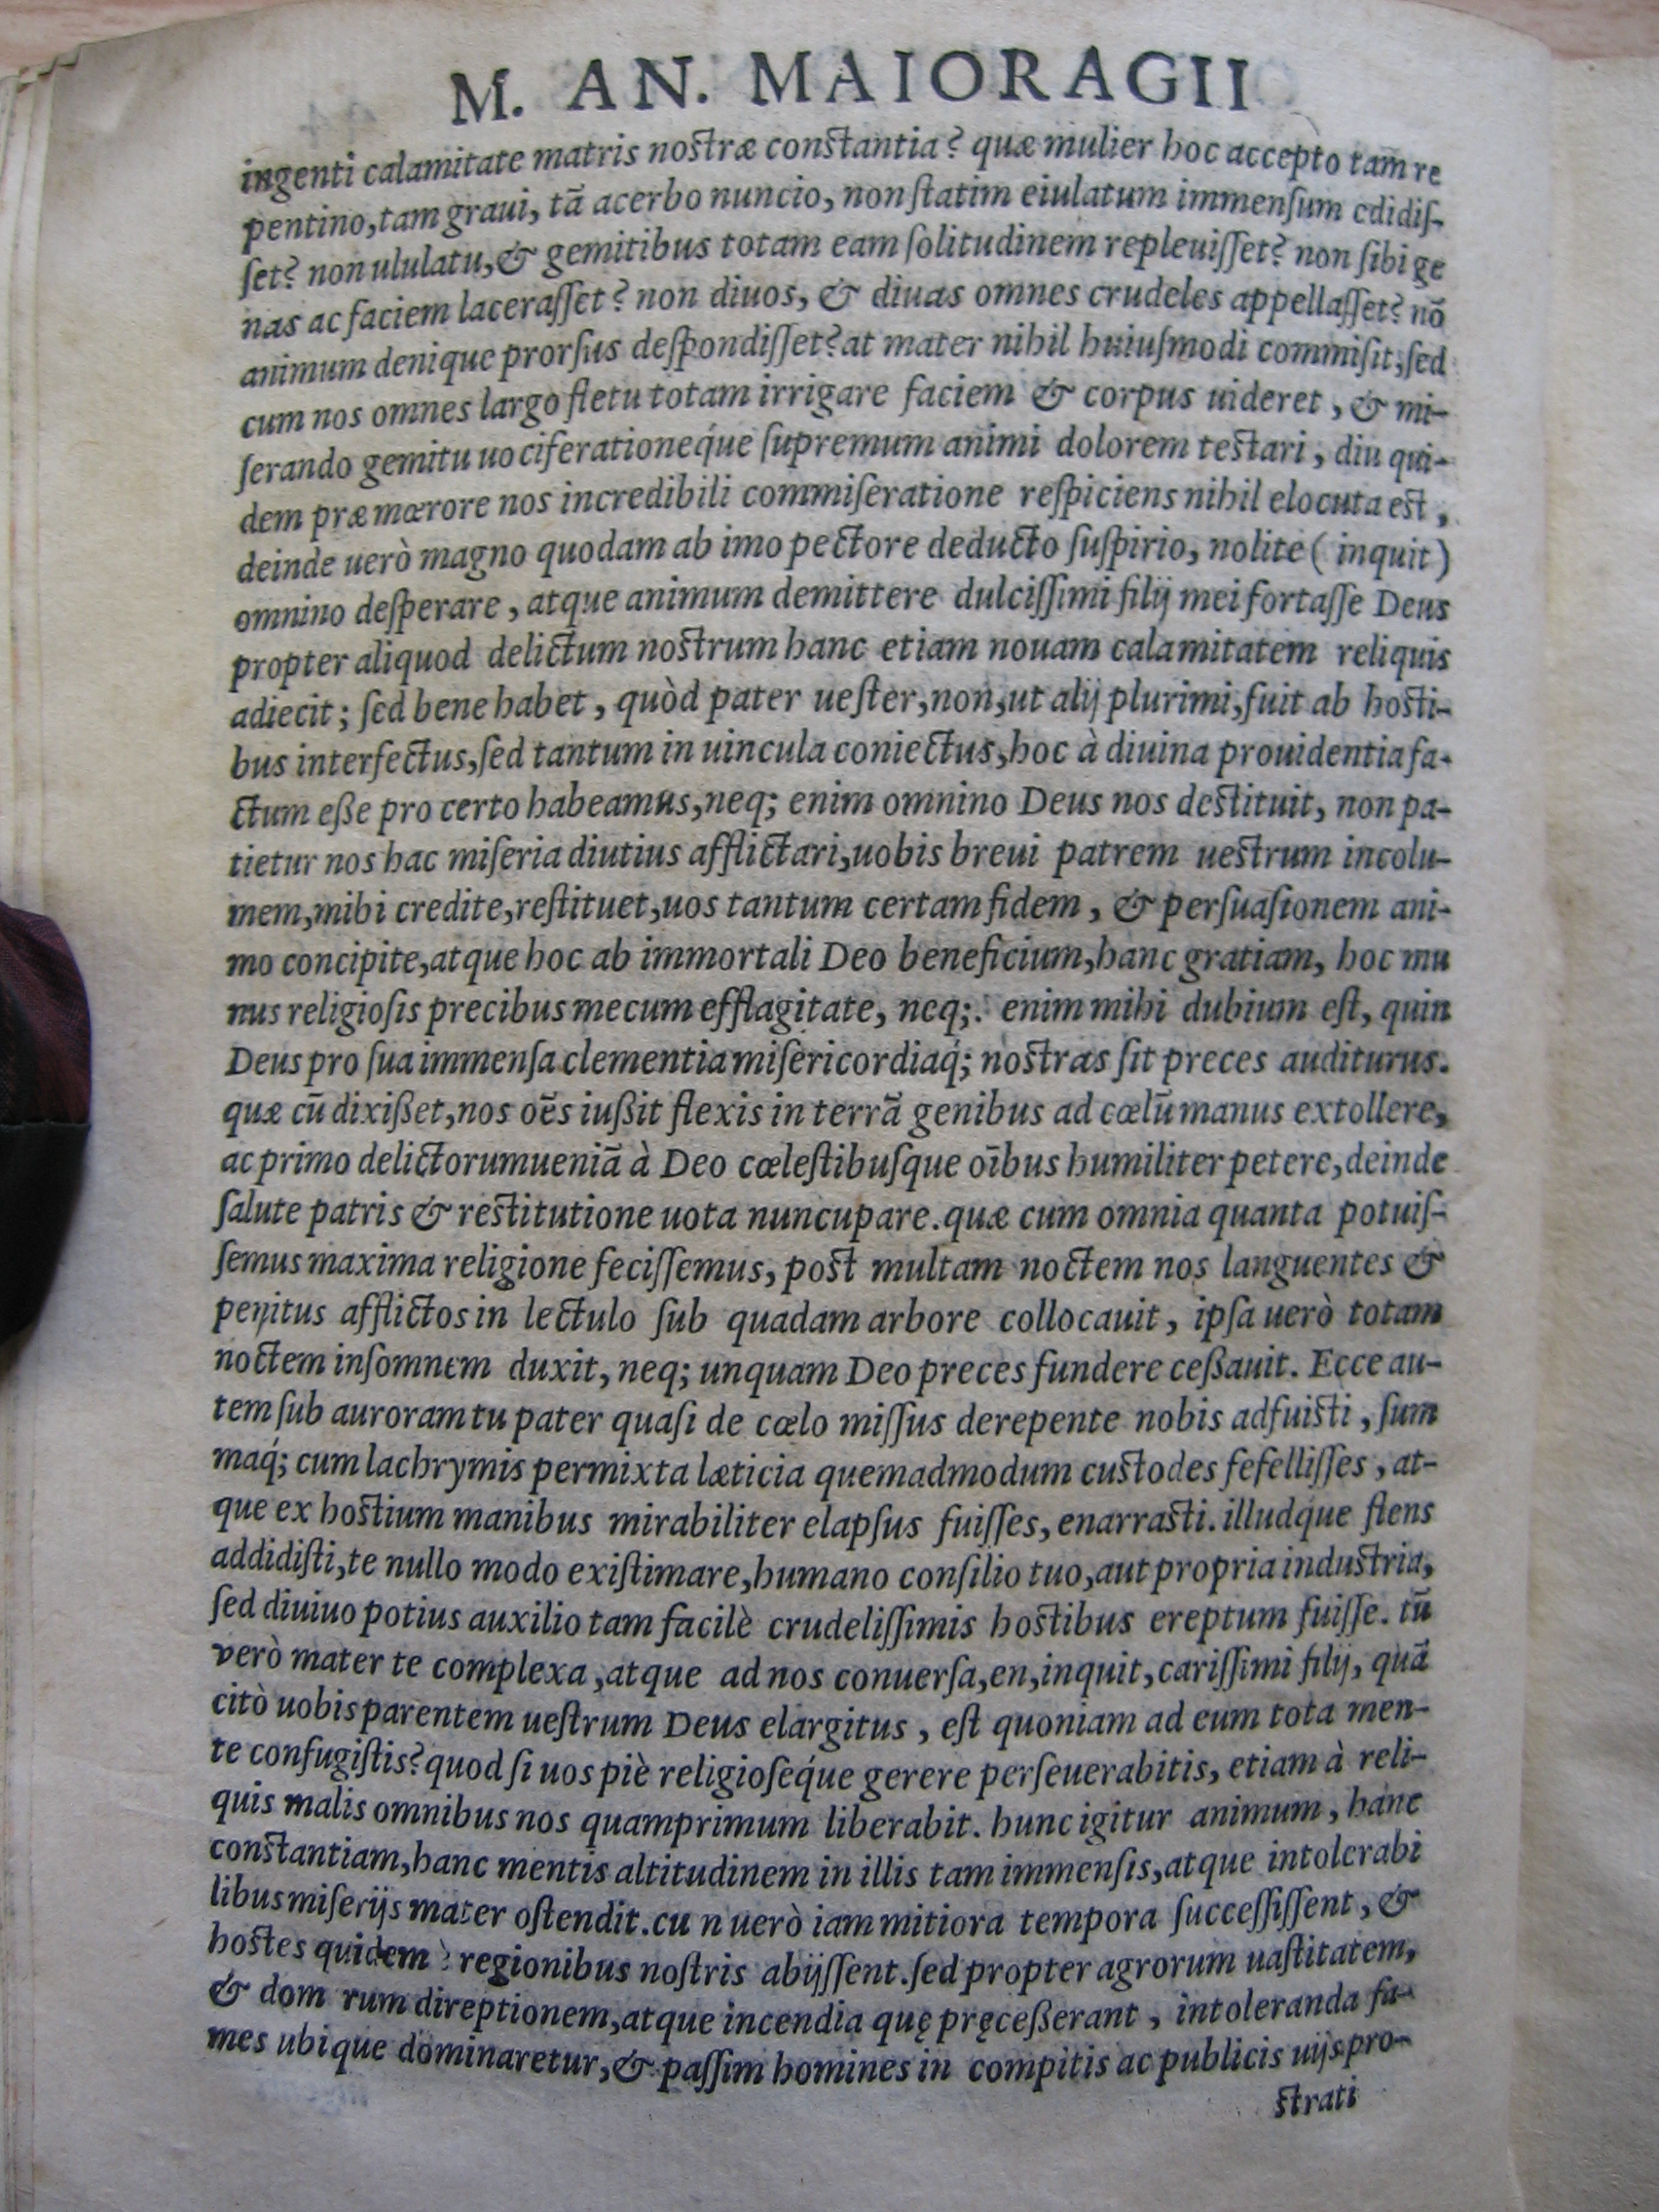 M. AN. MAIORAGII
ingenti calamitate matris nostræ constantia? quæ mulier hoc accepto tam re
pentino, tam graui, tã acerbo nuncio, non ſtatim eiulatum immenſum edidiſ-
ſet? non ululatu, & gemitibus totam eam ſolitudinem repleuiſſet? non ſibi ge
nas ac faciem laceraſſet? non diuos, & diuas omnes crudeles appellaſſet? nõ
animum denique prorſus deſpondiſſet? at mater nihil huiuſmodi commiſit, ſed
cum nos omnes largo fletu totam irrigare faciem & corpus uideret, & mi-
ſerando gemitu uociferationeq́ue ſupremum animi dolorem testari, diu qui-
dem præ mœrore nos incredibili commiſeratione reſpiciens nihil elocuta est,
deinde uerò magno quodam ab imo pectore deducto ſuſpirio, nolite (inquit)
omnino deſperare, atque animum demittere dulciſſimi filij mei fortaſſe Deus
propter aliquod delictum nostrum hanc etiam nouam calamitatem reliquis
adiecit; ſed bene habet, quòd pater ueſter, non, ut alij plurimi, fuit ab hosti-
bus interfectus, ſed tantum in uincula coniectus, hoc à diuina prouidentia fa-
ctum eße pro certo habeamus, neq; enim omnino Deus nos destituit, non pa-
tietur nos hac miſeria diutius afflictari, uobis breui patrem uestrum incolu-
mem, mihi credite, reſtituet, uos tantum certam fidem, & perſuaſionem ani-
mo concipite, atque hoc ab immortali Deo beneficium, hanc gratiam, hoc mu
nus religioſis precibus mecum efflagitate, neq;. enim mihi dubium eſt, quin
Deus pro ſua immenſa clementia miſericordiaq́; nostras ſit preces auditurus.
quæ cũ dixißet, nos oẽs iußit flexis in terrã genibus ad cœlũ manus extollere,
ac primo delictorum ueniã à Deo cœleſtibuſque oĩbus humiliter petere, deinde
ſalute patris & restitutione uota nuncupare. quæ cum omnia quanta potuiſ-
ſemus maxima religione feciſſemus, post multam noctem nos languentes &
penitus afflictos in lectulo ſub quadam arbore collocauit, ipſa uerò totam
noctem inſomnem duxit, neq; unquam Deo preces fundere ceßauit. Ecce au-
tem ſub auroram tu pater quaſi de cœlo miſſus derepente nobis adfuisti, ſum
maq́; cum lachrymis permixta læticia quemadmodum custodes fefelliſſes, at-
que ex hostium manibus mirabiliter elapſus fuiſſes, enarrasti. illudque flens
addidiſti, te nullo modo exiſtimare, humano conſilio tuo, aut propria industria,
ſed diuiuo potius auxilio tam facilè crudeliſſimis hostibus ereptum fuiſſe. tũ
verò mater te complexa, atque ad nos conuerſa, en, inquit, cariſſimi filij, quã
citò uobis parentem ueſtrum Deus elargitus, eſt quoniam ad eum tota men-
te confugiſtis? quod ſi uos piè religioſeq́ue gerere perſeuerabitis, etiam à reli-
quis malis omnibus nos quamprimum liberabit. hunc igitur animum, hanc
constantiam, hanc mentis altitudinem in illis tam immenſis, atque intolerabi
libus miſerijs mater oſtendit. cu n uerò iam mitiora tempora ſucceſſiſſent, &
hostes quidem è regionibus noſtris abijſſent. ſed propter agrorum uaſtitatem,
& dom rum direptionem, atque incendia quę pręceßerant, intoleranda fa-
mes ubique dominaretur, & paſſim homines in compitis ac publicis uijs pro-
strati